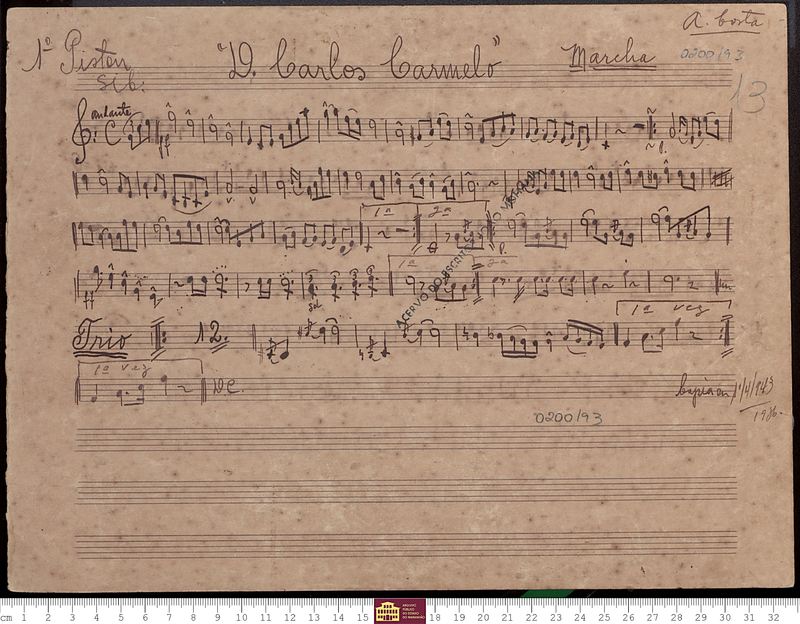 A. Costa
1º Piston "D. Carlos Carmelo" Marcha
Sib. 0200/93
13
Andante
ff
1ª 2ª
ff Sol 1ª 2ª
Trio 12. 1ª vez
1ª vez D.C. Copia em
0200/93
ACERVO DO ESCRITOR
cm 1 2 3 4 5 6 7 8 9 10 11 12 13 14 15 18 19 20 21 22 23 24 25 26 27 28 29 30 31 32
ARQUIVO
PÚBLICO
DO ESTADO
DO MARANHÃO